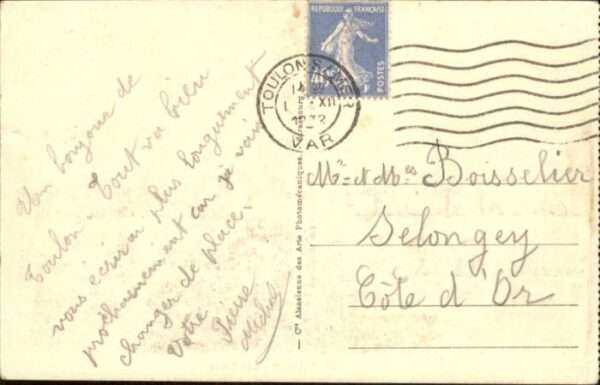 Un bonjour de
Toulon. Tout va bien
vous écrirai plus longuement
prochainement car je vais
changer de place.
Votre
Pierre
REPUBLIQUE FRANÇAISE
POSTES
TOULON S/MER
VAR
Cie Alsacienne des Arts Photomécaniques, Strasbourg
Mr et Mes Boisselier
Selongey
Côte d'Or